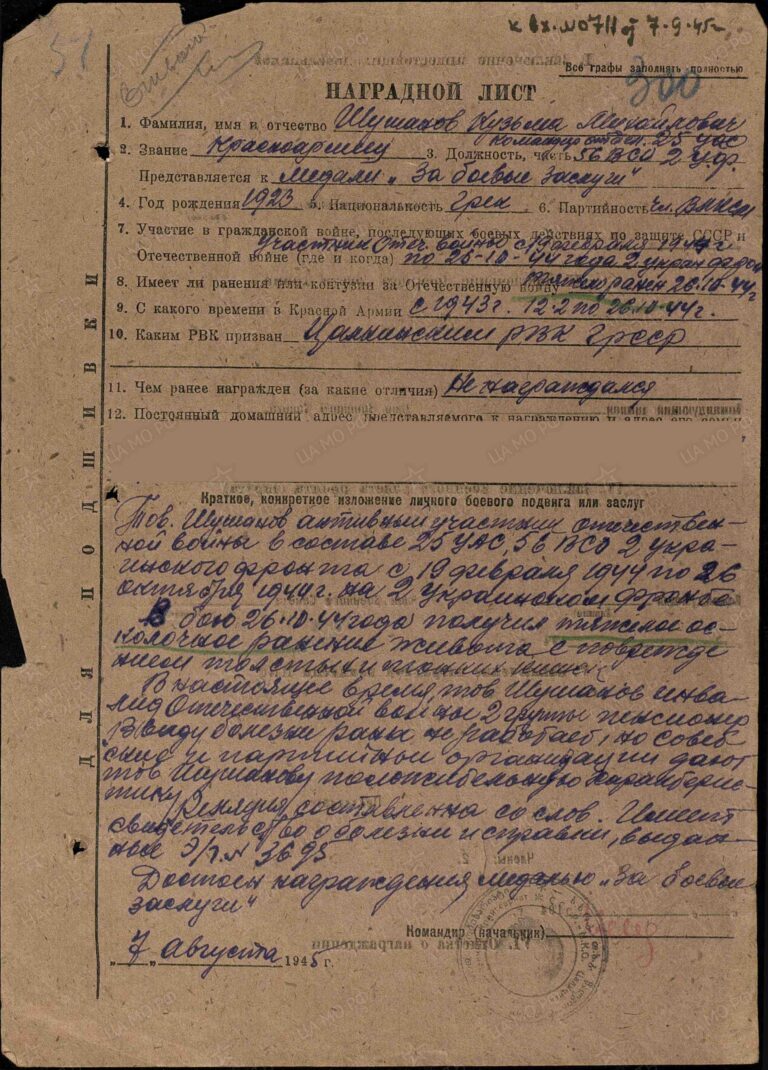 к вх. № 0711 от 7-9-45г
57
Все графы заполнять полностью
300
НАГРАДНОЙ ЛИСТ
1. Фамилия, имя и отчество Шушанов Кузьма Михайлович
командир отдел. 25 УАС
2. Звание Красноармеец 3. Должность, часть 56 ВСО 2 Укр.
Представляется к медали „За боевые заслуги"
4. Год рождения 1923 5. Национальность грек 6. Партийность чл. ВЛКСМ
7. Участие в гражданской войне, последующих боевых действиях по защите СССР и
участник Отеч. войны с 19 февраля 1944 г.
Отечественной войне (где и когда) по 26-10-44 года 2 укран фрон
8. Имеет ли ранения или контузии за Отечественную войну тяжело ранен 26.10.44г
9. С какого времени в Красной Армии с 1943 г. 12.2 по 26.10.44 г.
10. Каким РВК призван Цалкинским рвк ГрССР
11. Чем ранее награжден (за какие отличия) Не награждался
12. Постоянный домашний адрес представляемого к награждению и адрес его семьи
ДЛЯ ПОДШИВКИ
Краткое, конкретное изложение личного боевого подвига или заслуг
Тов. Шушанов активный участник отечествен-
ной войны в составе 25 УАС, 56 ВСО 2 укра-
инского фронта с 19 февраля 1944 по 26
октября 1944 г. на 2 Украинском фронте
В бою 26.10.44 года получил тяжелое ос-
колочное ранение живота с поврежде
нием толстых и тонких кишок
В настоящее время тов Шушанов инва-
лид Отечественной войны 2 группы пенсионер
Ввиду болезни раны не работает, но совет
ские и партийные организации дают
тов Шушанову положительную характерис
тику
Реляция составленна со слов. Имеет
свидетельство о болезни и справки, выдан-
ные Э/г. № 3695
Достоен награждения медалью „За боевые
заслуги"
Командир (начальник)
„7" августа 1945 г.